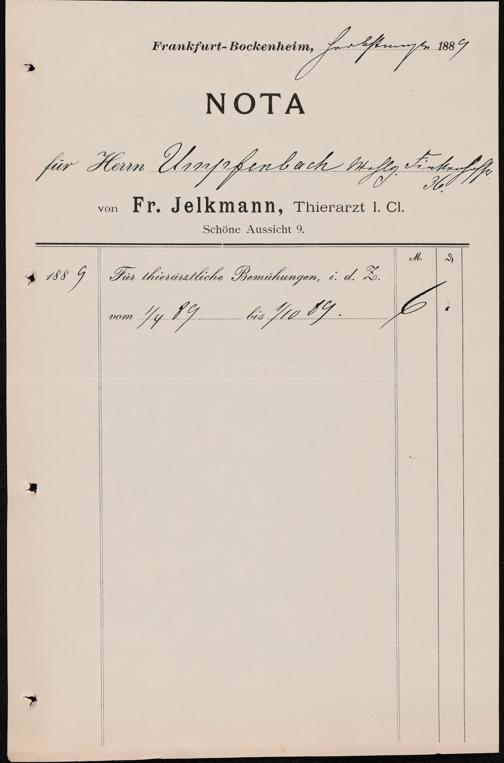 Frankfurt-Bockenheim, Herbstmesse 1889
NOTA
für Herrn Umpfenbach Wohlg.
von Fr. Jelkmann, Thierarzt I. Cl.
Schöne Aussicht 9.
M. ₰
1889 Für thierärztliche Bemühungen, i. d. Z.
vom 1/4 89 bis 1/10 89. 6 .